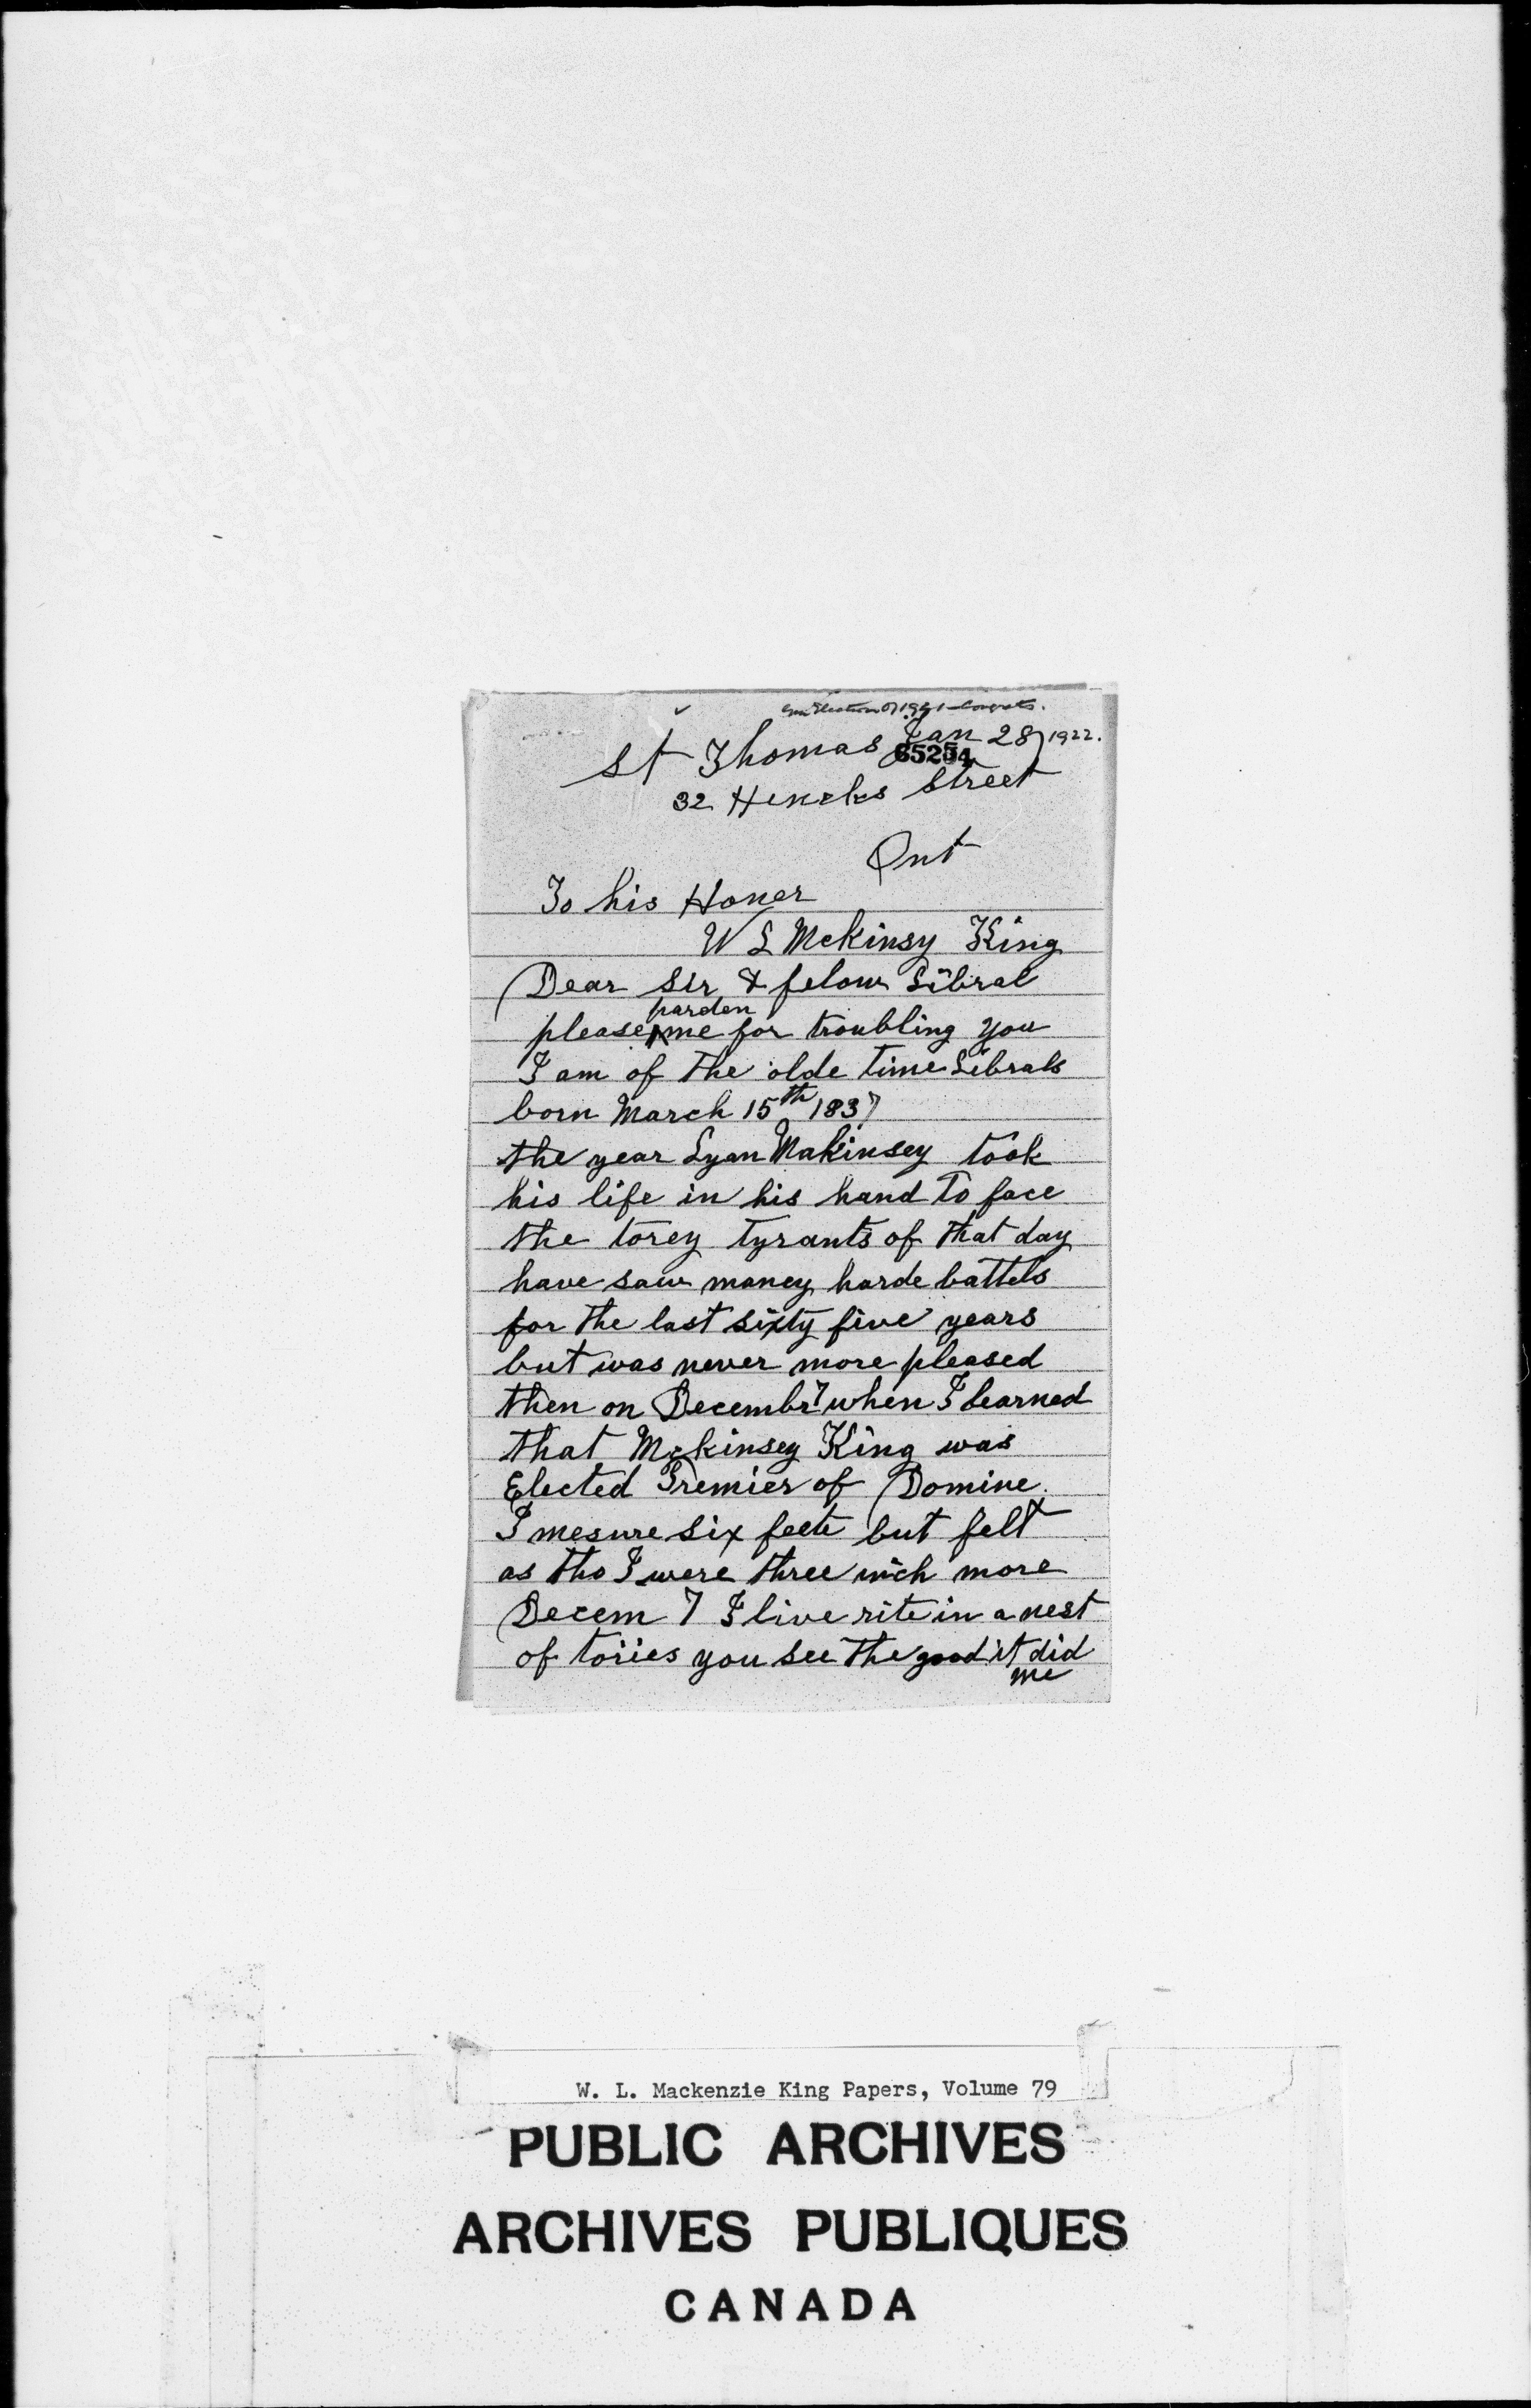 Gen Election of 1921 - Congrats.
St Thomas Jan 28 1922.
65254
32 Hincks Street
Ont
To his Honer
W L Mckinsy King
Dear Sir & felow Libral
please parden me for troubling you
I am of the olde time Librals
born March 15th 1837
the year Lyan Makinsey took
his life in his hand to face
the torey tyrants of that day
have saw maney harde battels
for the last sixty five years
but was never more pleased
then on Decembr 7 when I learned
that Mckinsey King was
Elected Premier of Domine.
I mesure six feete but felt
as tho I were three inch more
Decem 7 I live rite in a nest
of tories you see the good it did
me
W. L. Mackenzie King Papers, Volume 79
PUBLIC ARCHIVES
ARCHIVES PUBLIQUES
CANADA